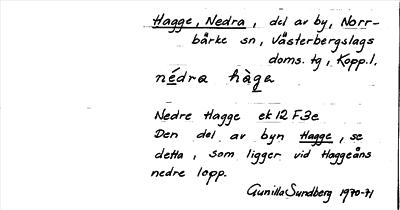 Hagge, Nedra, del av by, Norr-
bärke sn, Västerbergslags
doms. tg, Kopp.l.
nédra hàga
Nedre Hagge ek 12 F 3e
Den del av byn Hagge, se
detta, som ligger vid Haggeåns
nedre lopp.
Gunilla Sundberg 1970-71